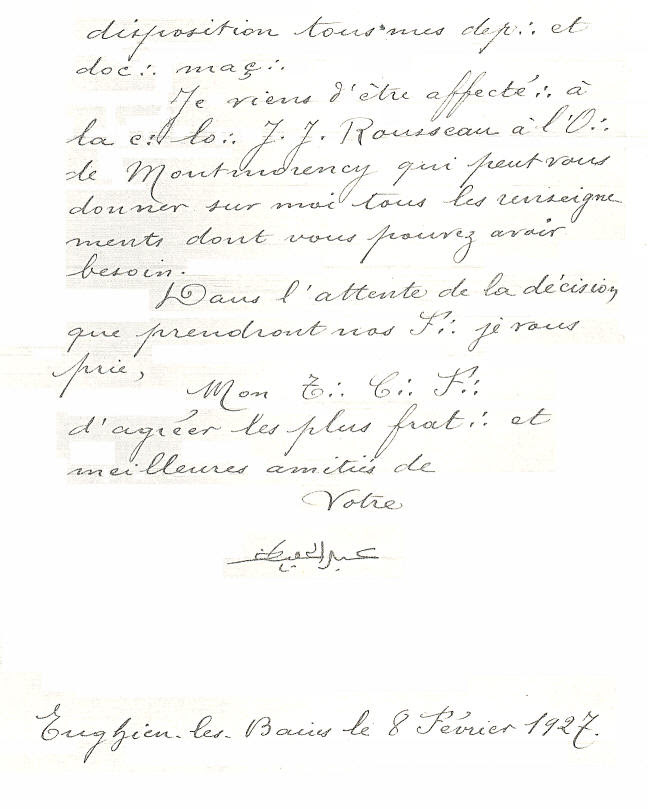 disposition tous mes dep∴ et
doc∴ maç∴
Je viens d'être affecté∴ à
la c∴ lo∴ J. J. Rousseau à l'O∴
de Montmorency qui peut vous
donner sur moi tous les renseigne
ments dont vous pouvez avoir
besoin.
Dans l'attente de la décision
que prendront nos F∴ je vous
prie,
Mon T∴ C∴ F∴
d'agréer les plus frat∴ et
meilleures amitiés de
Votre
عبدالحفيظ
Enghien-les-Bains le 8 Février 1927.